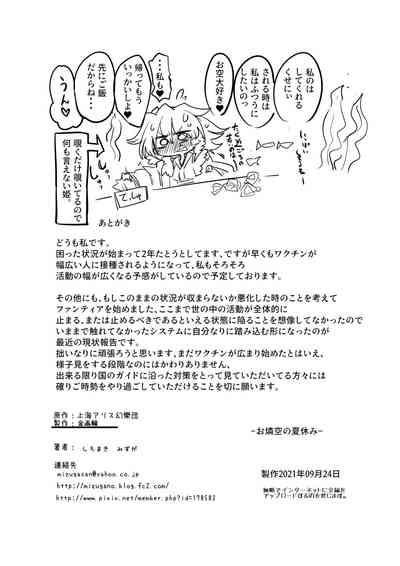 私のは
してくれる
くせにぃ
される時は
私はふつうに
したいのっ
お空大好き♥
・・・私も♥
帰ってもう
いっかいしよ♥
先にご飯
だからね・・
うん♥
覗くだけ覗いてるので
何も言えない姫。
てゐ
あとがき
どうも私です。
困った状況が始まって2年たとうとしてます、ですが早くもワクチンが
幅広い人に接種されるようになって、私もそろそろ
活動の幅が広くなる予感がしているので予定しております。
その他にも、もしこのままの状況が収まらないか悪化した時のことを考えて
ファンティアを始めました、ここまで世の中の活動が全体的に
止まる、または止めるべきであるといえる状態に陥ることを想像してなかったので
いままで触れてなかったシステムに自分なりに踏み込む形になったのが
最近の現状報告です。
拙いなりに頑張ろうと思います、まだワクチンが広まり始めたとはいえ、
様子見をする段階なのにはかわりありません、
出来る限り国のガイドに沿った対策をとって見ていただいてる方々には
確りご時勢をやり過ごしていただけることを切に願います。
原作：上海アリス幻樂団
製作：金画輪
著者：しちまき みずが
-お燐空の夏休み-
連絡先
mizugasan@yahoo.co.jp
http://mizugano.blog.fc2.com/
http://www.pixiv.net/member.php?id=178583
製作2021年09月24日
無断でインターネットに全編を
アップロードするのを禁じます。